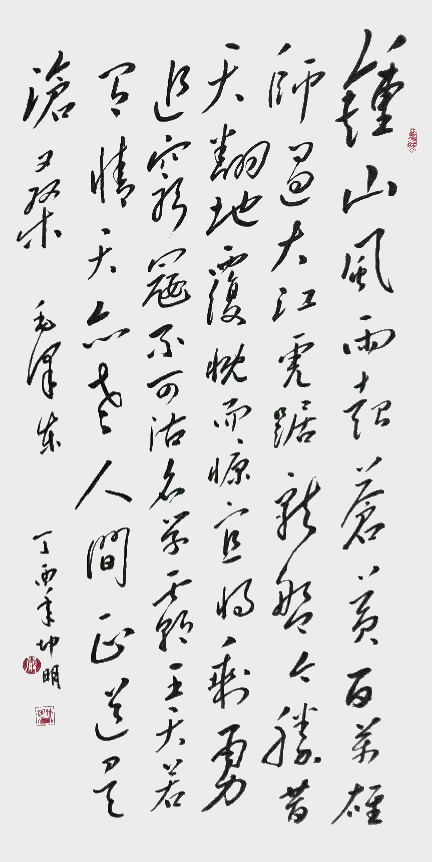 鍾山風雨起蒼黃百萬雄
師過大江虎踞龍盤今勝昔
天翻地覆慨而慷宜將剩勇
追窮寇不可沽名學霸王天若
有情天亦老人間正道是
滄桑 毛澤東
丁酉年坤明